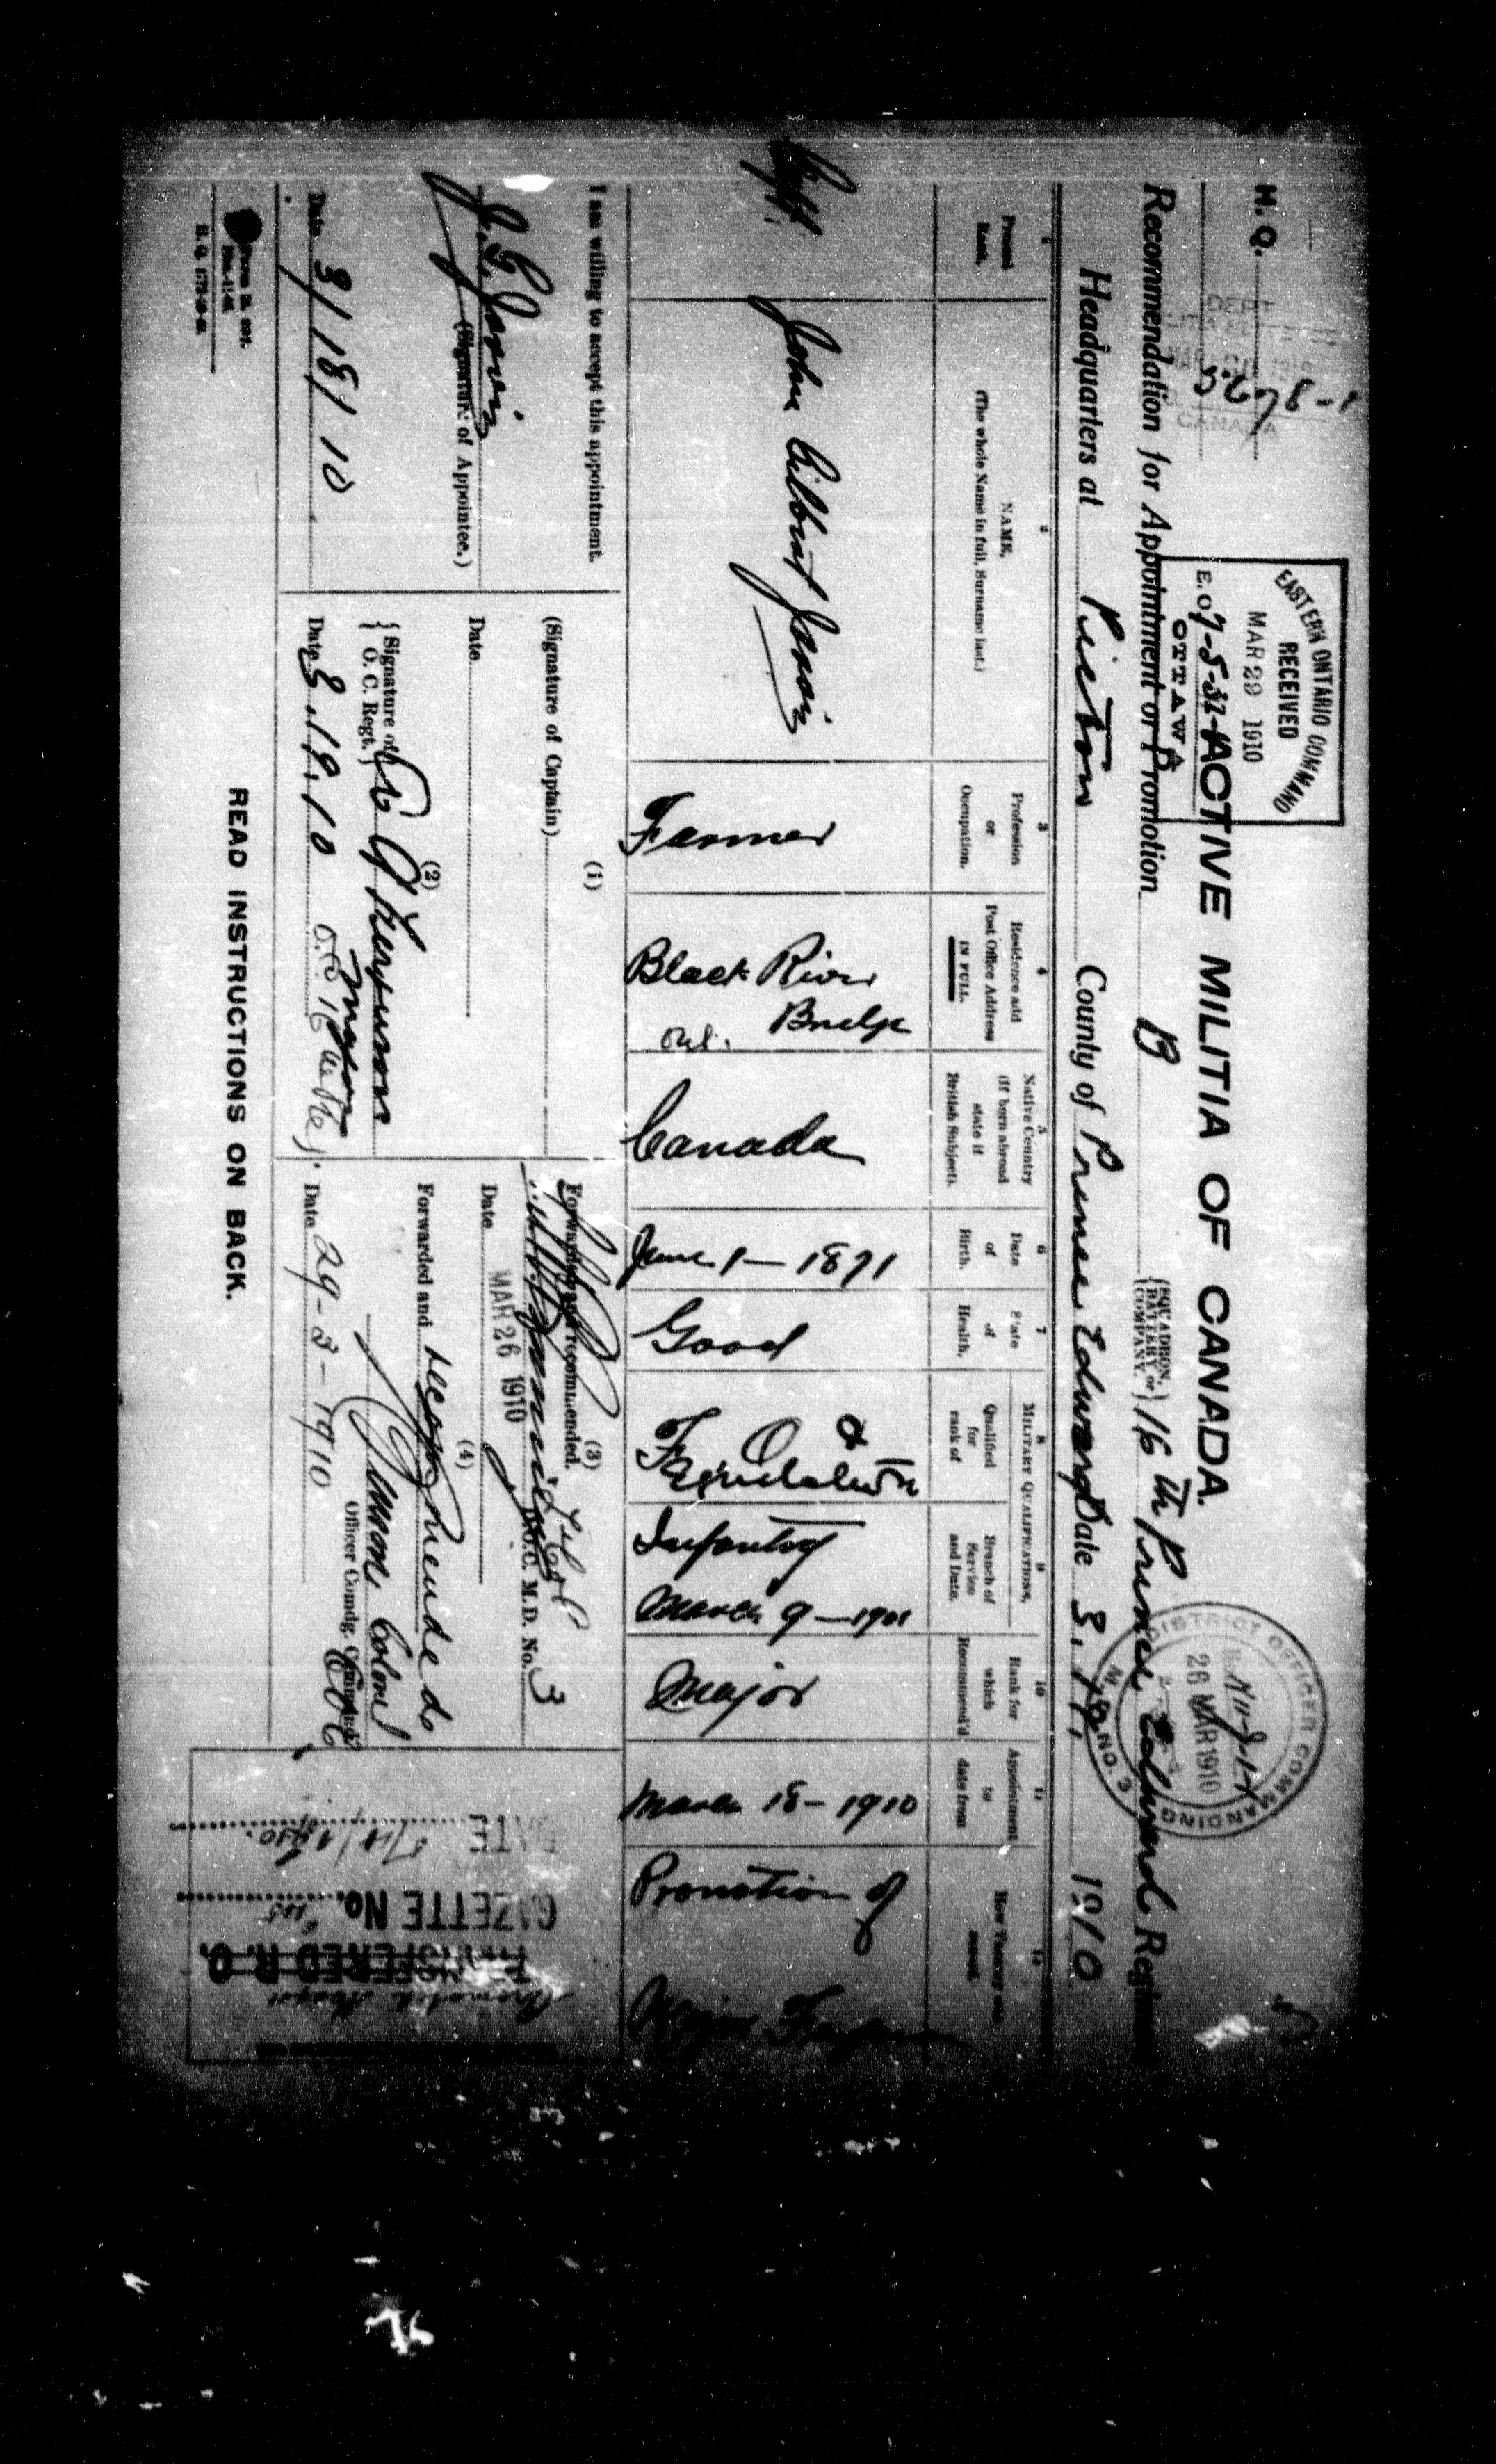 H. Q. 5678-1
DEPT
CANADA
EASTERN ONTARIO COMMAND
RECEIVED
MAR 29 1910
E.O. 7-5-32-1
OTTAWA
ACTIVE MILITIA OF CANADA.
DISTRICT OFFICER COMMANDING
26 MAR 1910
M. D. NO. 3
Recommendation for Appointment or Promotion B {SQUADRON, BATTERY or COMPANY.} 16th Prince Edward Regiment
Headquarters at Picton County of Prince Edward Date 3.19. 1910
1
Present
Rank.
2
NAME,
(The whole Name in full, Surname last.)
3
Profession
or
Occupation.
4
Residence and
Post Office Address
IN FULL.
5
Native Country
(If born abroad
state if
British Subject).
6
Date
of
Birth.
7
State
of
Health.
MILITARY QUALIFICATIONS.
8
Qualified
for
rank of
9
Branch of
Service
and Date.
10
Rank for
which
Recommend'd
11
Appointment
to
date from
12
How Vacancy was
caused.
Capt.
John Gilbert Jarvis
Farmer
Black River
Bridge
Ont.
Canada
June 1 — 1871
Good
Infantry
March 9 — 1901
Major
March 18 - 1910
Promotion of
Major Ferguson
I am willing to accept this appointment.
J. G. Jarvis
(Signature of Appointee.)
Date 3/18/10
(1)
(Signature of Captain)
Date
(2)
{Signature of
O. C. Regt.}
Ferguson
Major
Date 3.19.10 O.C. 16
(3)
Forwarded and recommended.
D.O.C. M.D. No. 3
Date MAR 26 1910
(4)
Forwarded and recommended
Colonel
Officer Comdg. Command
Date 29-3-1910
Promoted Major
TRANSFERED R. O.
GAZETTE No.
DATE
READ INSTRUCTIONS ON BACK.